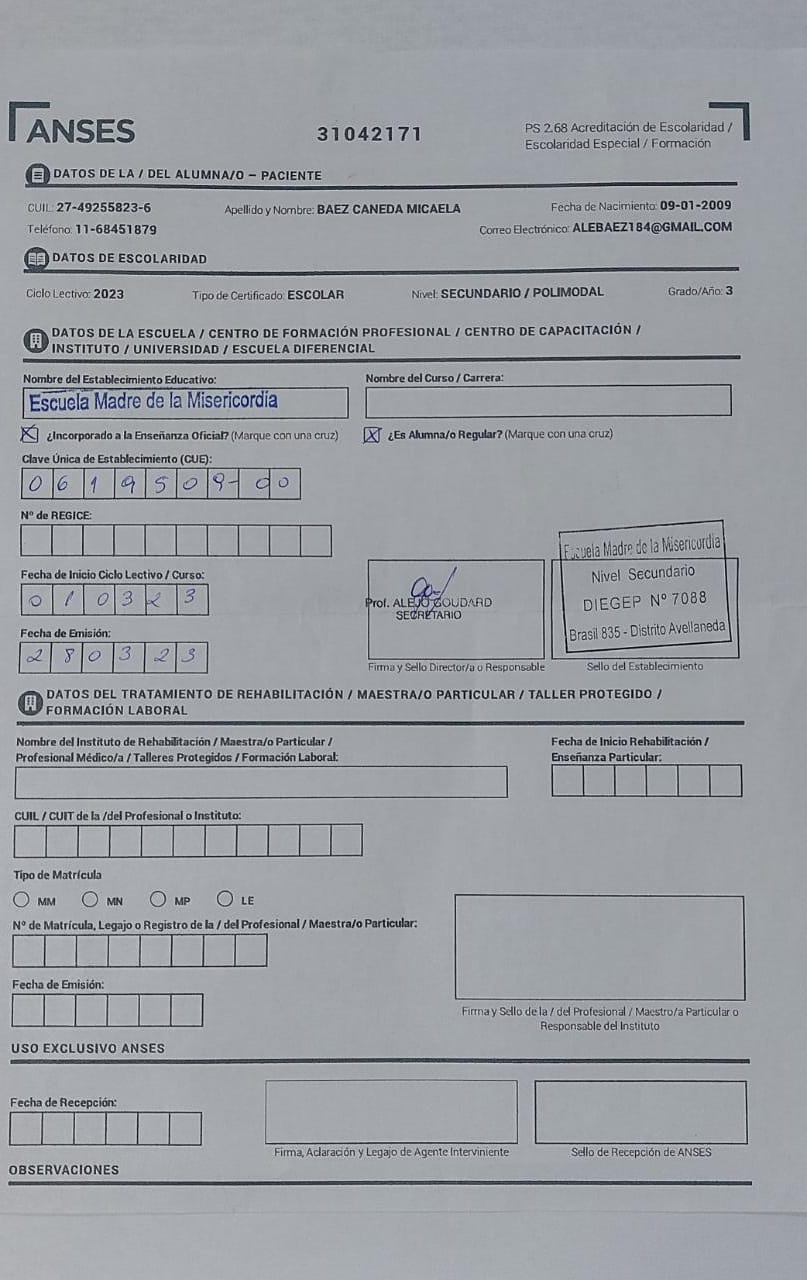 ANSES
31042171
PS 2.68 Acreditación de Escolaridad /
Escolaridad Especial / Formación
DATOS DE LA / DEL ALUMNA/O – PACIENTE
CUIL: 27-49255823-6 Apellido y Nombre: BAEZ CANEDA MICAELA Fecha de Nacimiento: 09-01-2009
Teléfono: 11-68451879 Correo Electrónico: ALEBAEZ184@GMAIL.COM
DATOS DE ESCOLARIDAD
Ciclo Lectivo: 2023 Tipo de Certificado: ESCOLAR Nivel: SECUNDARIO / POLIMODAL Grado/Año: 3
DATOS DE LA ESCUELA / CENTRO DE FORMACIÓN PROFESIONAL / CENTRO DE CAPACITACIÓN /
INSTITUTO / UNIVERSIDAD / ESCUELA DIFERENCIAL
Nombre del Establecimiento Educativo: Nombre del Curso / Carrera:
Escuela Madre de la Misericordia
X ¿Incorporado a la Enseñanza Oficial? (Marque con una cruz) X ¿Es Alumna/o Regular? (Marque con una cruz)
Clave Única de Establecimiento (CUE):
0619509-00
Nº de REGICE:
Fecha de Inicio Ciclo Lectivo / Curso:
010323
Fecha de Emisión:
280323
Prof. ALEJO GOUDARD
SECRETARIO
Firma y Sello Director/a o Responsable
Escuela Madre de la Misericordia
Nivel Secundario
DIEGEP Nº 7088
Brasil 835 - Distrito Avellaneda
Sello del Establecimiento
DATOS DEL TRATAMIENTO DE REHABILITACIÓN / MAESTRA/O PARTICULAR / TALLER PROTEGIDO /
FORMACIÓN LABORAL
Nombre del Instituto de Rehabilitación / Maestra/o Particular /
Profesional Médico/a / Talleres Protegidos / Formación Laboral:
Fecha de Inicio Rehabilitación /
Enseñanza Particular:
CUIL / CUIT de la /del Profesional o Instituto:
Tipo de Matrícula
MM MN MP LE
Nº de Matrícula, Legajo o Registro de la / del Profesional / Maestra/o Particular:
Fecha de Emisión:
Firma y Sello de la / del Profesional / Maestro/a Particular o
Responsable del Instituto
USO EXCLUSIVO ANSES
Fecha de Recepción:
Firma, Aclaración y Legajo de Agente Interviniente
Sello de Recepción de ANSES
OBSERVACIONES